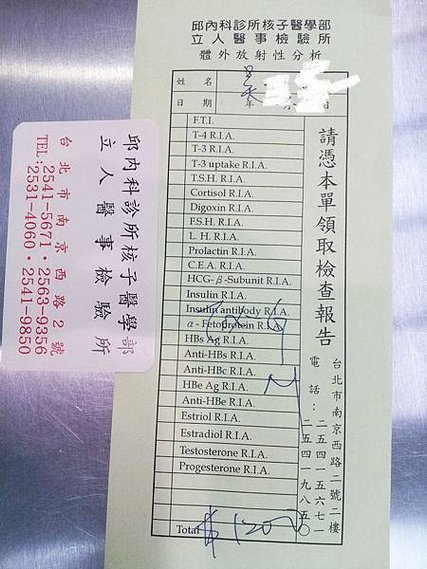 邱內科診所核子醫學部
立人醫事檢驗所
體外放射性分析
姓名
吳
日期 年 月 日
F.T.I.
T-4 R.I.A.
T-3 R.I.A.
T-3 uptake R.I.A.
T.S.H. R.I.A.
Cortisol R.I.A.
Digoxin R.I.A.
F.S.H. R.I.A.
L. H. R.I.A.
Prolactin R.I.A.
C.E.A. R.I.A.
HCG-β-Subunit R.I.A.
Insulin R.I.A.
Insulin antibody R.I.A.
α-Fetoprotein R.I.A.
HBs Ag R.I.A.
Anti-HBs R.I.A.
Anti-HBc R.I.A.
HBe Ag R.I.A.
Anti-HBe R.I.A.
Estriol R.I.A.
Estradiol R.I.A.
Testosterone R.I.A.
Progesterone R.I.A.
Total $1200
請憑本單領取檢查報告
台北市南京西路二號二樓
電話：二五四一五六七一
二五四一九八五〇
邱內科診所核子醫學部
立人醫事檢驗所
台北市南京西路2號
TEL:2541-5671・2563-9356
2531-4060・2541-9850